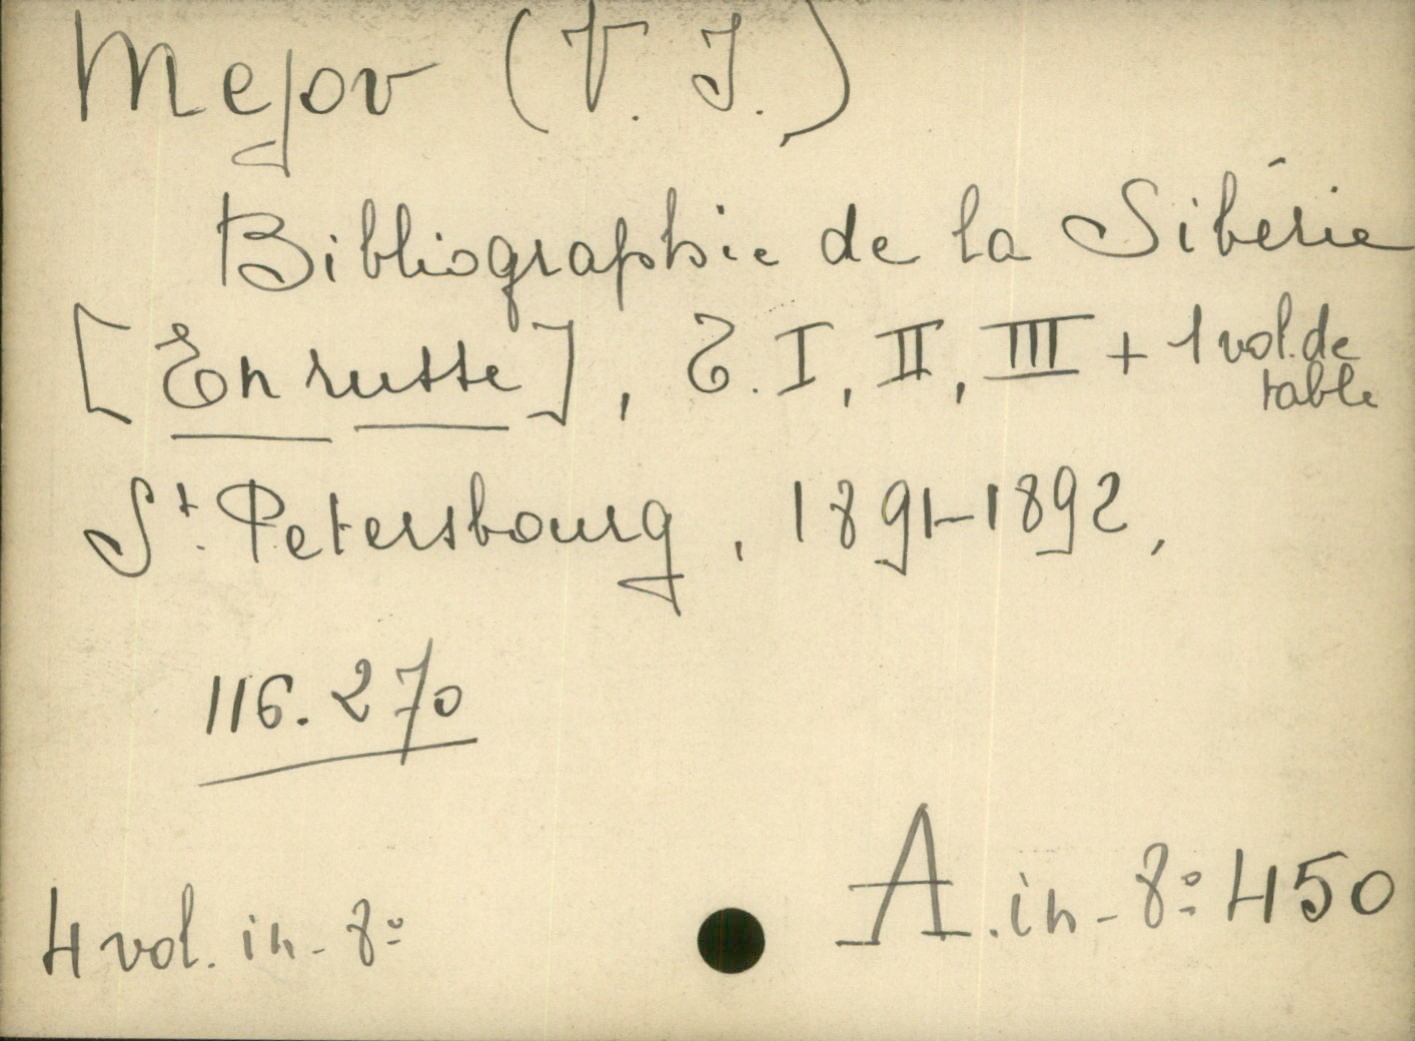 Mejov (V. J.)
Bibliographie de la Sibérie
[En russe], T. I, II, III + 1 vol. de
table
St. Petersbourg, 1891-1892,
116.270
4 vol. in-8º
A. in-8º 450